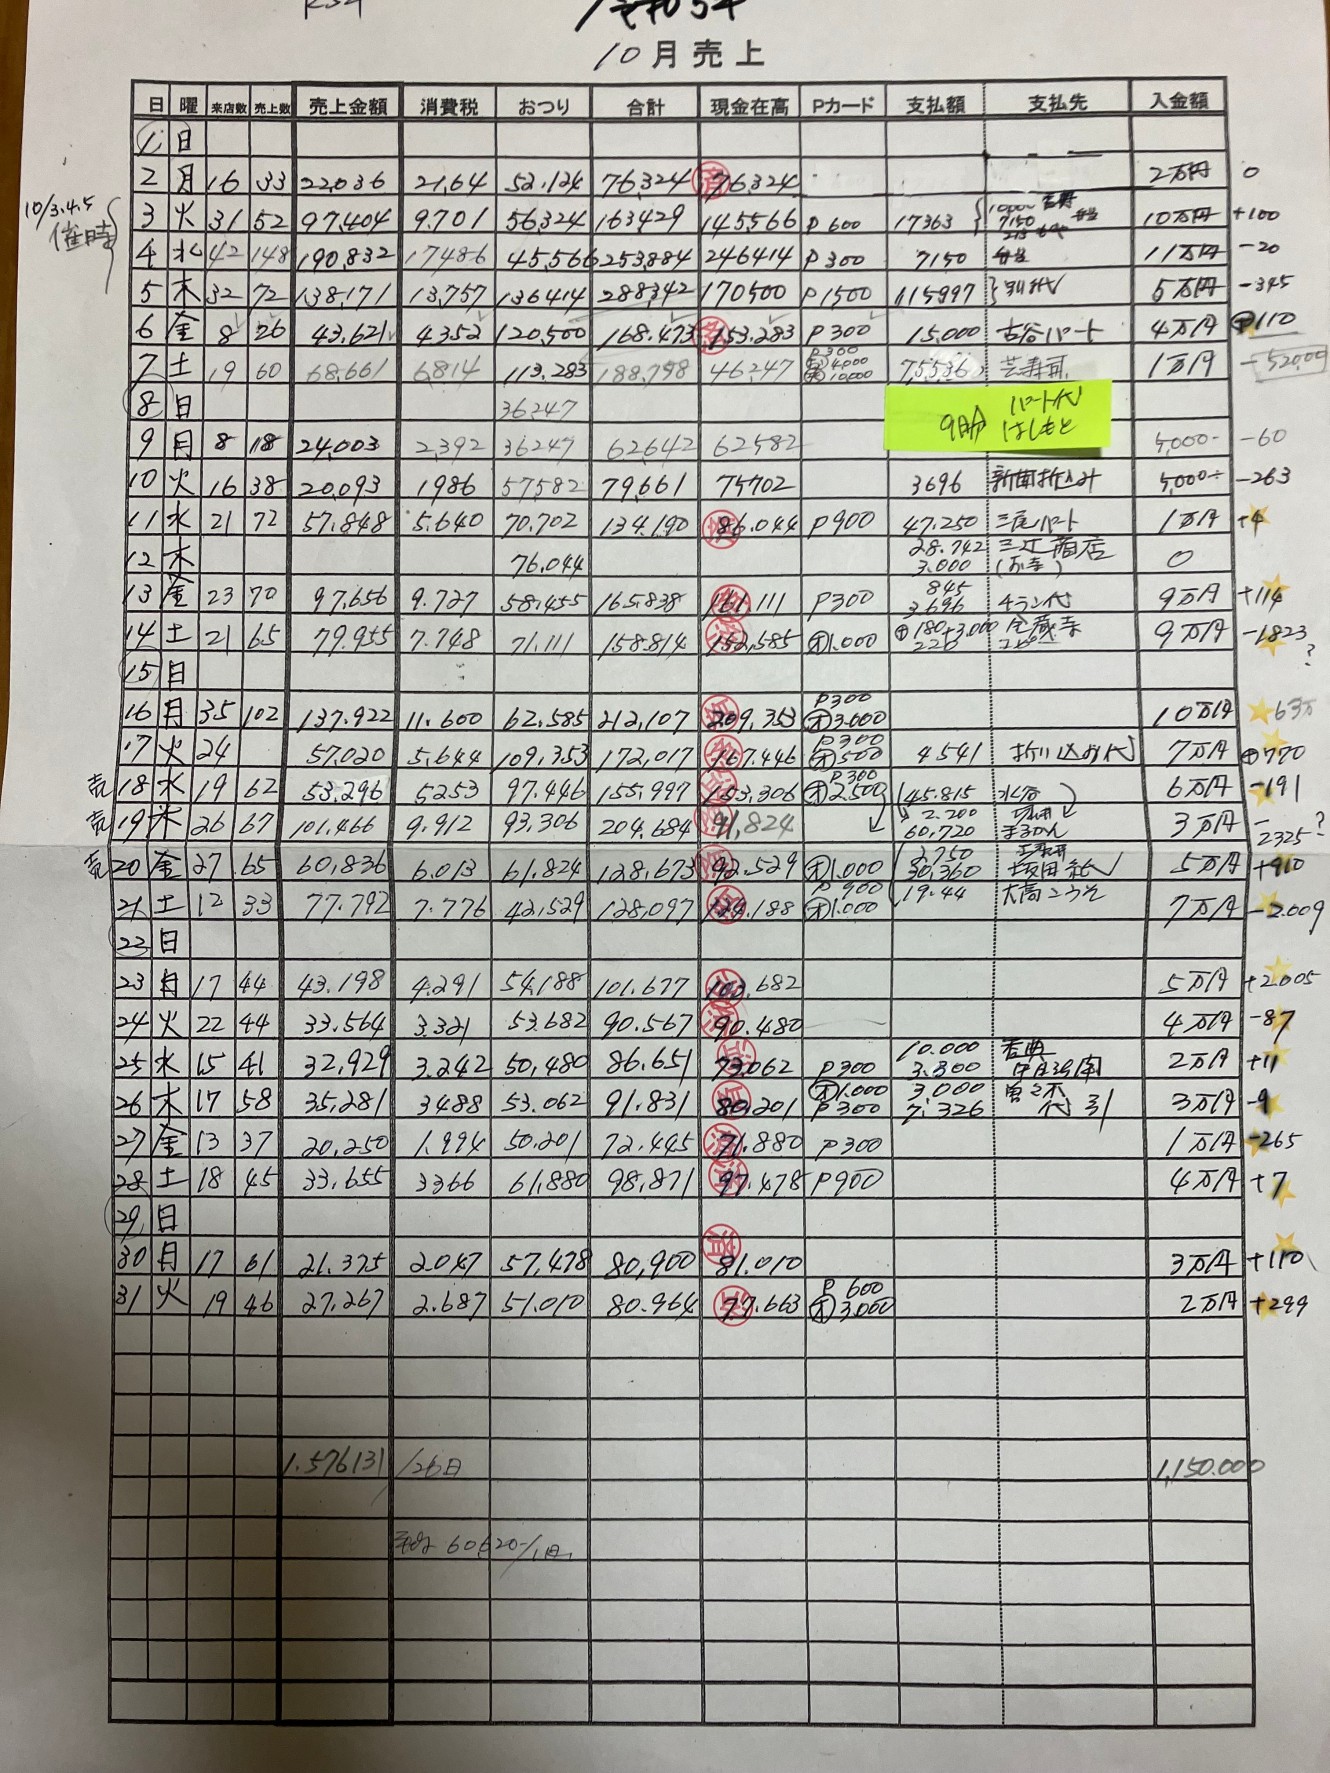 10月売上
日 曜 来店数 売上数 売上金額 消費税 おつり 合計 現金在高 Pカード 支払額 支払先 入金額
1 日
2 月 16 33 22,036 21,64 52.124 76,324 済 76,324 2万円 0
10/3.4.5
催時
3 火 31 52 97,404 9.701 56,324 163429 145,566 P 600 17363 7150 弁当 10万円 +100
4 水 42 148 190,832 17486 45,566 253,884 246414 P 300 7150 弁当 11万円 -20
5 木 32 72 138,171 13,757 136414 288342 170500 P1500 115997 5万円 -345
6 金 8 26 43,621 4352 120,500 168.473 153.283 P 300 15,000 古谷パート 4万円 110
7 土 19 60 68,661 6,814 113.283 188,758 46,247 P300 4,000 10,000 75,536 芸寿司 1万円 -52,000
8 日 36247
9時 パート代
はしもと
9 月 8 18 24,003 2,392 36247 62642 62582 5,000- -60
10 火 16 38 20,093 1986 57,582 79,661 75702 3696 新聞折込み 5,000- -263
11 水 21 72 57,848 5,640 70,702 134,190 86,044 P900 47,250 三尾パート 1万円 +4
12 木 76,044 28.742 三辻商店 3,000 0
13 金 23 70 97,656 9.727 58,455 165,838 161,111 P300 845 3,696 チラシ代 9万円 +114
14 土 21 65 79,955 7.748 71,111 158,814 152,585 オ1,000 180+3,000 226 9万円 -1823 ?
15 日
16 月 35 102 137.922 11.600 62,585 212,107 209,353 P300 オ3,000 10万円 63万
17 火 24 57,020 5,644 109,353 172,017 167.446 P300 オ500 4541 折り込み代 7万円 +770
売 18 水 19 62 53,296 5253 97.446 155,997 153,306 P300 オ2,500 45.815 6万円 -191
売 19 木 26 67 101,466 9,912 93,306 204,684 91,824 2.200 60,720 まるかん 3万円 -2325 ?
売 20 金 27 65 60,836 6,013 61,824 128,673 92,529 オ1,000 2,750 30,360 坂田紙 5万円 +910
21 土 12 33 77.792 7.776 42,529 128,097 124,188 P900 オ1,000 19.44 大高こうそ 7万円 -2.009
22 日
23 月 17 44 43.198 4.291 54,188 101.677 103,682 5万円 +2005
24 火 22 44 33.564 3.321 53.682 90.567 90.480 4万円 -87
25 水 15 41 32,929 3.242 50,480 86,651 73,062 P300 10.000 3,300 香典 2万円 +11
26 木 17 58 35,281 3488 53.062 91.831 80,201 オ1,000 P300 3,000 7,326 代引 3万円 -9
27 金 13 37 20,250 1.994 50,201 72,445 71,880 P300 1万円 -265
28 土 18 45 33,655 3366 61,880 98,871 97,478 P900 4万円 +7
29 日
30 月 17 61 21.375 2047 57,478 80,900 済 81.010 3万円 +110
31 火 19 46 27,267 2.687 51,010 80.964 77.663 P 600 オ3,000 2万円 +299
1.576131 /26日 1,150.000
平均 60,620-/1日